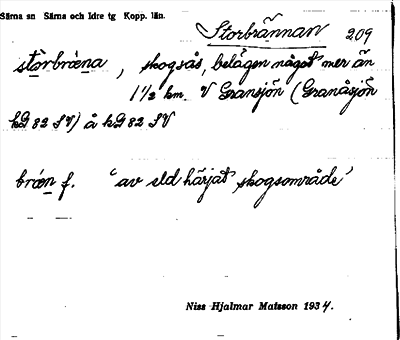 Särna sn Särna och Idre tg Kopp. län.
Storbrännan 209
stòrbræ̀na, skogsås, belägen något mer än
1½ km. V Gransjön (Granåsjön
kD 82 SV) å kD 82 SV
bræn f. "av eld härjat skogsområde"
Niss Hjalmar Matsson 1934.